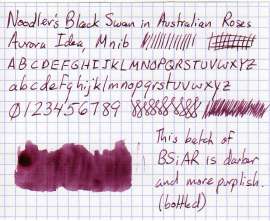 Noodler's Black Swan in Australian Roses
Aurora Idea, M nib
ABCDEFGHIJKLMNOPQRSTUVWXYZ
abcdefghijklmnopqrstuvwxyz
0123456789
This batch of
BSiAR is darker
and more purplish.
(bottled)